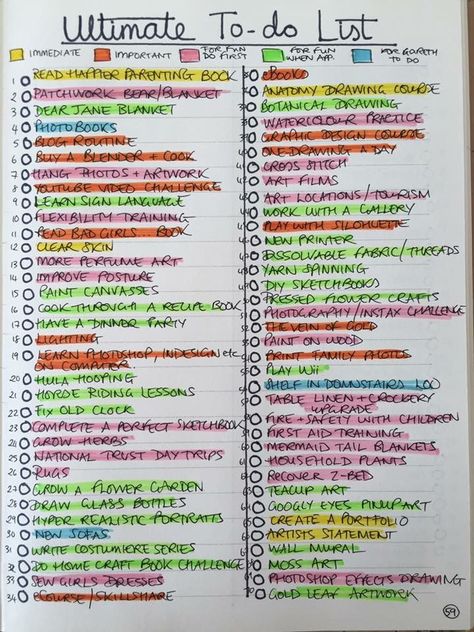 Ultimate To-do List
IMMEDIATE IMPORTANT FOR FUN DO FIRST FOR FUN WHEN APP. FOR GARETH TO DO
1 READ HAPPIER PARENTING BOOK
2 PATCHWORK BEAR/BLANKET
3 DEAR JANE BLANKET
4 PHOTOBOOKS
5 BLOG ROUTINE
6 BUY A BLENDER + COOK
7 HANG PHOTOS + ARTWORK
8 YOUTUBE VIDEO CHALLENGE
9 LEARN SIGN LANGUAGE
10 FLEXIBILITY TRAINING
11 READ BAD GIRLS BOOK
12 CLEAR SKIN
13 MORE PERFUME ART
14 IMPROVE POSTURE
15 PAINT CANVASSES
16 COOK THROUGH A RECIPE BOOK
17 HAVE A DINNER PARTY
18 LIGHTING
19 LEARN PHOTOSHOP, INDESIGN etc
ON COMPUTER
20 HULA HOOPING
21 HORSE RIDING LESSONS
22 FIX OLD CLOCK
23 COMPLETE A PERFECT SKETCHBOOK
24 GROW HERBS
25 NATIONAL TRUST DAY TRIPS
26 RUGS
27 GROW A FLOWER GARDEN
28 DRAW GLASS BOTTLES
29 HYPER REALISTIC PORTRAITS
30 NEW SOFAS
31 WRITE COSTUMIERE SERIES
32 DO HOME CRAFT BOOK CHALLENGE
33 SEW GIRLS DRESSES
34 eCOURSE/SKILLSHARE
eBOOKS
ANATOMY DRAWING COURSE
BOTANICAL DRAWING
WATERCOLOUR PRACTICE
GRAPHIC DESIGN COURSE
ONE DRAWING A DAY
CROSS STITCH
ART FILMS
ART LOCATIONS/TOURISM
WORK WITH A GALLERY
PLAY WITH SILHOUETTE
NEW PRINTER
DISSOLVABLE FABRIC/THREADS
YARN SPINNING
DIY SKETCHBOOKS
PRESSED FLOWER CRAFTS
PHOTOGRAPHY/INSTAX CHALLENGE
THE VEIN OF GOLD
PAINT ON WOOD
PRINT FAMILY PHOTOS
PLAY Wii
SHELF IN DOWNSTAIRS LOO
TABLE LINEN + CROCKERY
UPGRADE
FIRE + SAFETY WITH CHILDREN
FIRST AID TRAINING
MERMAID TAIL BLANKETS
HOUSEHOLD PLANTS
RECOVER Z-BED
TEACUP ART
GOOGLY EYES PINUP ART
CREATE A PORTFOLIO
ARTISTS STATEMENT
WALL MURAL
MOSS ART
PHOTOSHOP EFFECTS DRAWING
GOLD LEAF ARTWORK
59